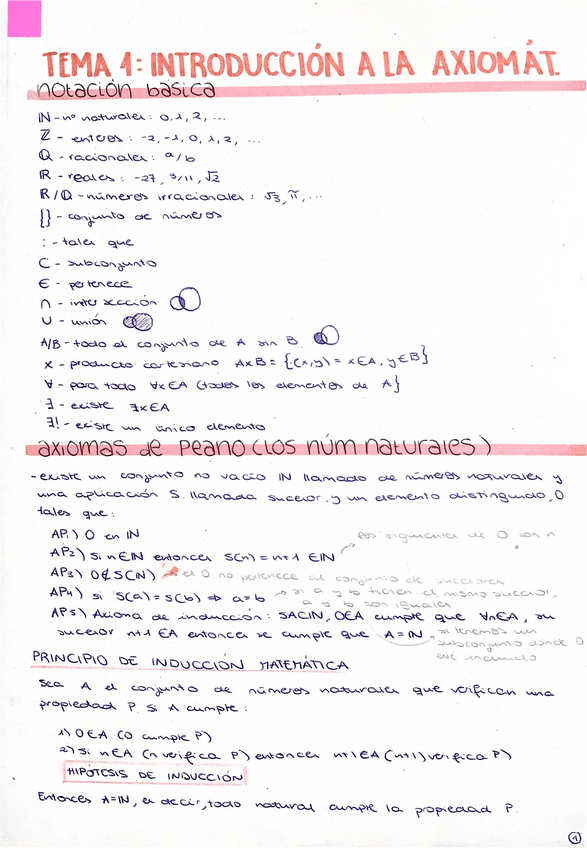 TEMA 1: INTRODUCCIÓN A LA AXIOMÁT.
notación básica
ℕ - nº naturales: 0, 1, 2, ...
ℤ - enteros: -2, -1, 0, 1, 2, ...
ℚ - racionales: a/b
ℝ - reales: -27, 3/11, √2
ℝ/ℚ - números irracionales: √3, π, ...
{} - conjunto de números
: - tales que
⊂ - subconjunto
∈ - pertenece
∩ - intersección
∪ - unión
A/B - todo el conjunto de A sin B
x - producto cartesiano AxB = {(x,y) = x∈A, y∈B}
∀ - para todo ∀x∈A (todos los elementos de A}
∃ - existe ∃x∈A
∃! - existe un único elemento
axiomas de Peano (los núm naturales)
- existe un conjunto no vacío ℕ llamado de números naturales y
una aplicación S. llamada sucesor, y un elemento distinguido, 0
tales que:
AP1) 0 en ℕ
los siguientes de 0 son n
AP2) si n∈ℕ entonces S(n) = n+1 ∈ℕ
AP3) 0∉S(ℕ) → el 0 no pertenece al conjunto de sucesores
AP4) si S(a) = S(b) ⇒ a=b → si a y b tienen el mismo sucesor,
a y b son iguales
AP5) Axioma de inducción: SACIN, 0∈A cumple que ∀n∈A, su
sucesor n+1 ∈A entonces se cumple que A=ℕ → si tenemos un
subconjunto donde 0
esté incluido
PRINCIPIO DE INDUCCIÓN MATEMÁTICA
Sea A el conjunto de números naturales que verifican una
propiedad P. Si A cumple:
1) 0∈A (0 cumple P)
2) si n∈A (n verifica P) entonces n+1∈A (n+1) verifica P)
HIPÓTESIS DE INDUCCIÓN
Entonces A=ℕ, es decir, todo natural cumple la propiedad P.
1